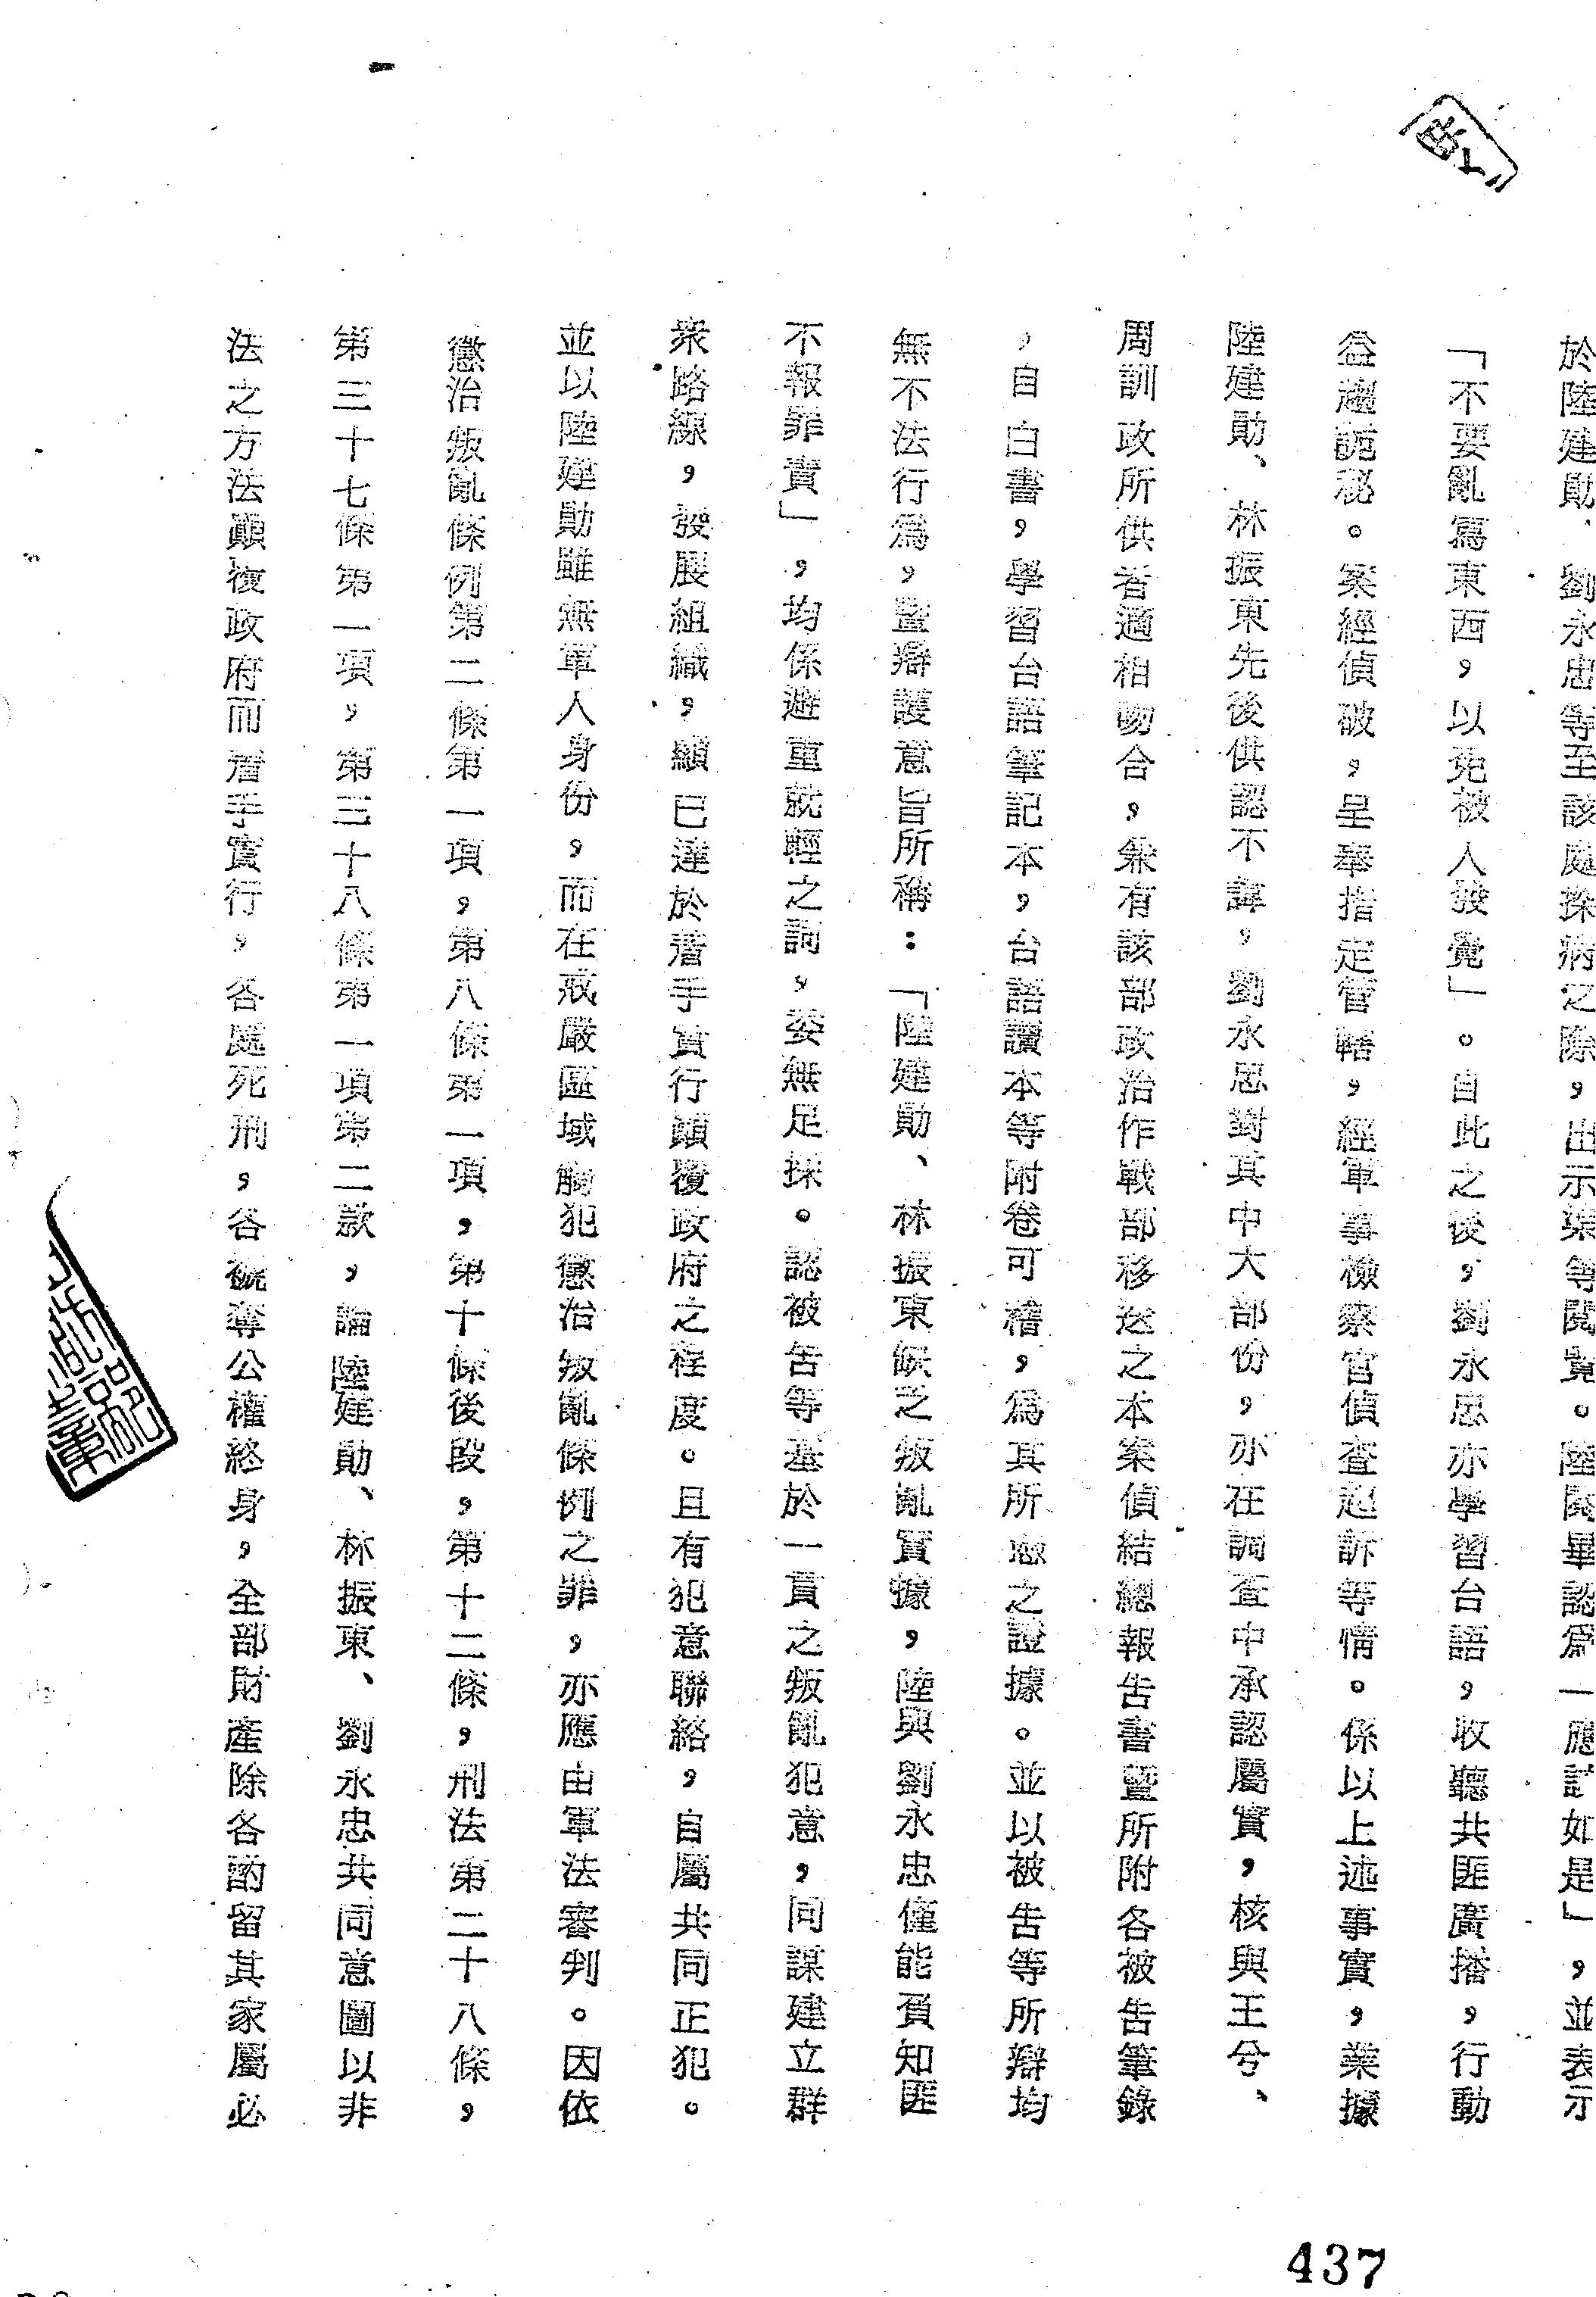 於陸建勛、劉永忠等至該處探病之際，出示梁等閱覽。陸閱畢認爲一應試如是」，並表示
「不要亂寫東西，以免被人發覺」。自此之後，劉永忠亦學習台語，收聽共匪廣播，行動
益趨詭秘。案經偵破，呈奉指定管轄，經軍事檢察官偵查起訴等情。係以上述事實，業據
陸建勛、林振東先後供認不諱，劉永忠對其中大部份，亦在調查中承認屬實，核與王兮、
周訓政所供者適相吻合，兼有該部政治作戰部移送之本案偵結總報告書暨所附各被告筆錄
，自白書，學習台語筆記本，台語讀本等附卷可稽，爲其所憑之證據。並以被告等所辯均
無不法行爲，暨辯護意旨所稱：「陸建勛、林振東缺乏叛亂實據，陸與劉永忠僅能負知匪
不報罪責」，均係避重就輕之詞，委無足採。認被告等基於一貫之叛亂犯意，同謀建立群
衆路線，發展組織，顯已達於着手實行顛覆政府之程度。且有犯意聯絡，自屬共同正犯。
並以陸建勛雖無軍人身份，而在戒嚴區域觸犯懲治叛亂條例之罪，亦應由軍法審判。因依
懲治叛亂條例第二條第一項，第八條第一項，第十條後段，第十二條，刑法第二十八條，
第三十七條第一項，第三十八條第一項第二款，論陸建勛、林振東、劉永忠共同意圖以非
法之方法顚覆政府而着手實行，各處死刑，各褫奪公權終身，全部財產除各酌留其家屬必
437